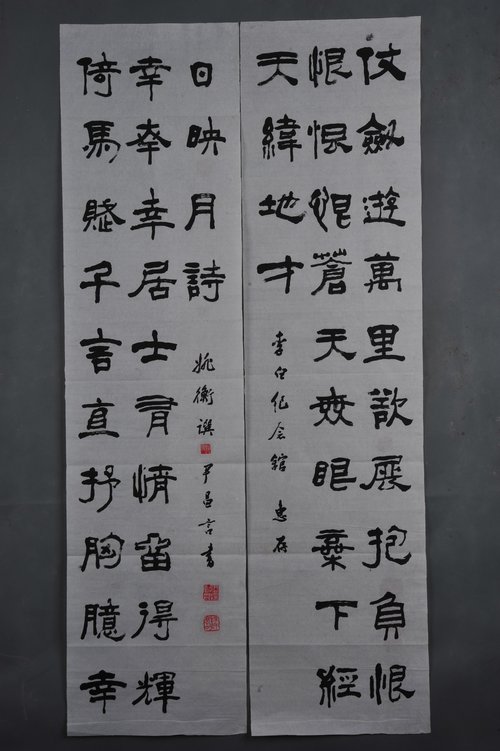 仗劍遊萬里欲展抱負恨
恨恨恨蒼天無眼棄下經
天緯地才
李白纪念館 惠存
倚馬賦千言直抒胸臆幸
幸幸幸居士有情留得輝
日映月詩
姚衡撰
昌言書